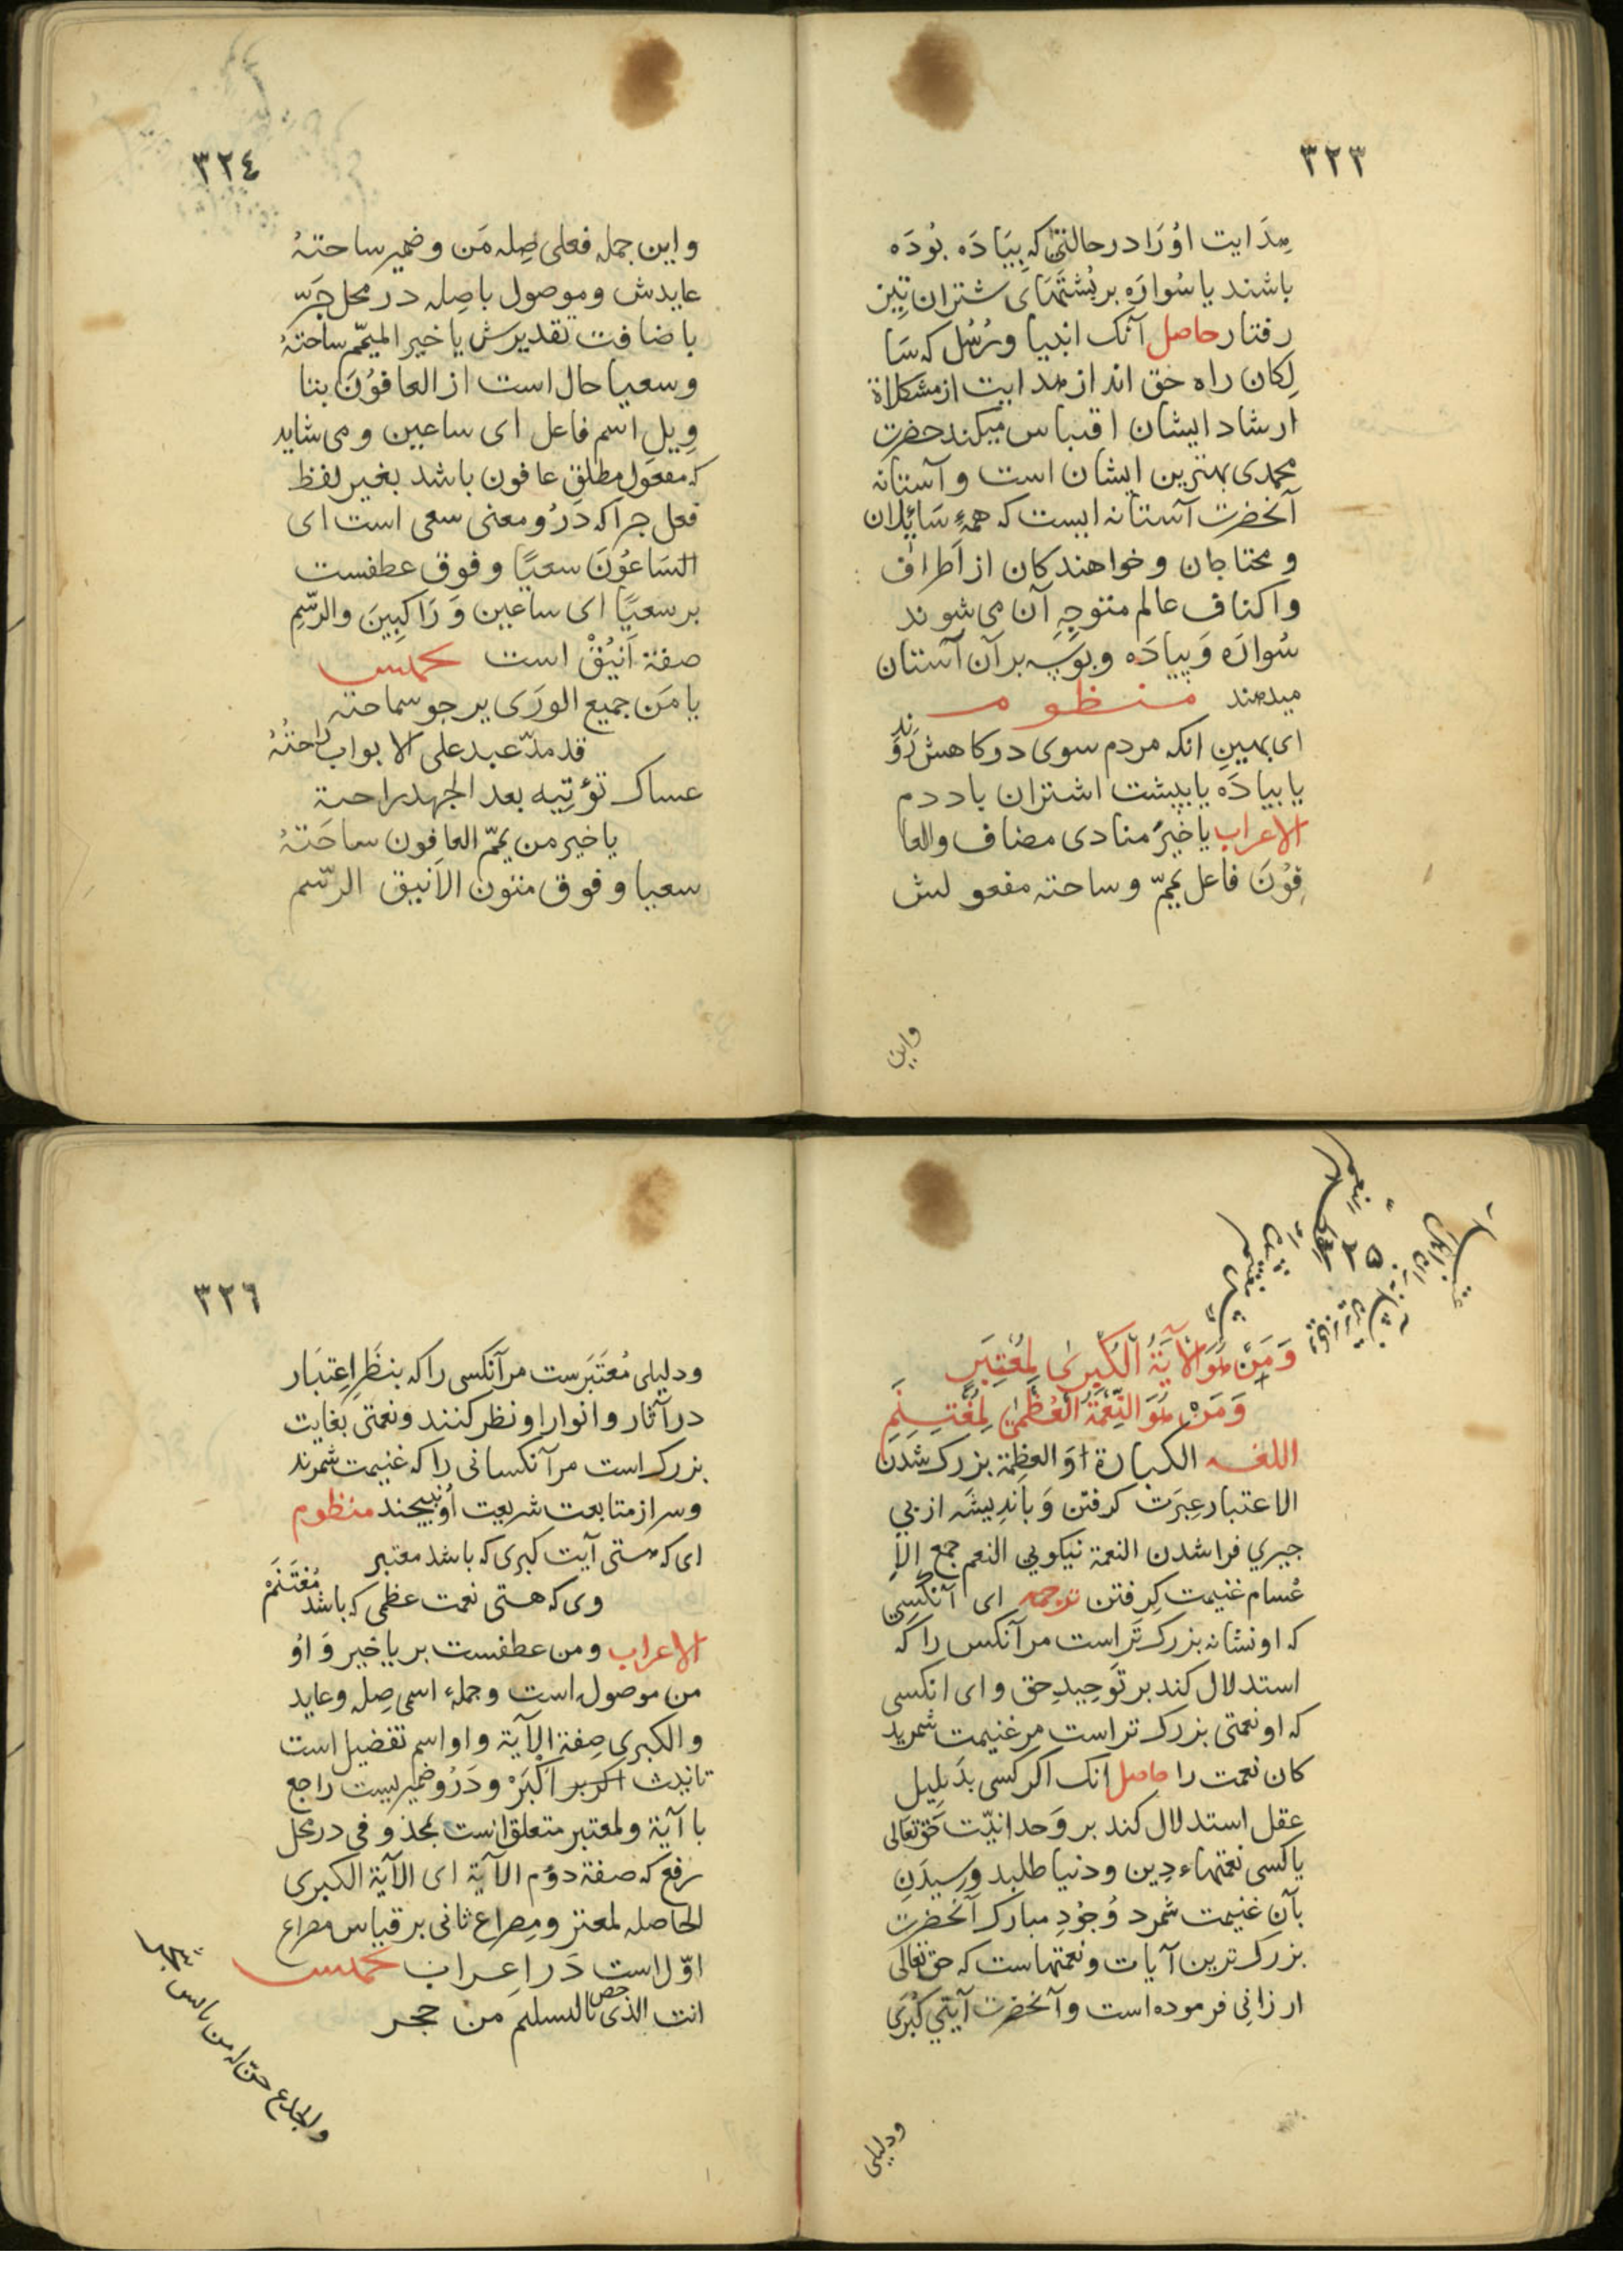 ٣٢٣
هدایت اوُرَا در حالتی که بِیَادَه بوُدَه
باشند یا سُوارَه بر پُشتَهَای شتران تیز
رفتار حاصل آنک انبیا و رُسُل که سَا
لِکان راه حق اند از هدایت از مشکلاة
ارشاد ایشان اقتباس میکند حضرت
محمدی بهترین ایشان است و آستانه
آنحضرت آستانه ایست که همهٔ سَائِلان
و محتاجان و خواهندکان از اَطراف
واکناف عالم متوجهِ آن می شوند
سُوارَه وَ پیادَه و بوسه بر آن آستان
میدهند منظوم
ای بهین انکه مردم سوی درکاهش رَوَند
یا بیادَه یا بپشت اشتران باددم
الاعراب یا خیرَ منادی مضاف والعا
فِوُنَ فاعل یَمّم و ساحته مفعولش
واین
٣٢٤
واین جمله فعلی صِله مَن و ضمیر ساحتهُ
عایدش و موصول باصِله در محل جَرّ
باضافت تقدیرش یا خیر المیمّم ساحتهُ
وسعیا حال است از العافوُنَ بتا
وِیلِ اسم فاعل ای ساعین و می شاید
که مفعول مطلقِ عافون باشد بغیر لفظ
فعل جرا که دَرُو معنی سعی است ای
السَاعوُنَ سعیًا و فوق عطفست
بر سعیًا ای ساعین وَ رَاکِبِینَ والرّسِمِ
صفة اَنیُقْ است تخمیس
یا مَن جمیع الورَی یرجو سماحته
قد مدّ عبد علی الابواب رَاحتُهُ
عساک تؤتیه بعد الجهد راحة
یا خیر من یمّم العافون ساحَتهُ
سعیا و فوق متون الاَنیق الرّسم
٣٢٥
وَمَنْ هُوَ الْآيَةُ الْكُبرىٰ لِمُعْتَبِرٍ
وَمَنْ هُوَ النِّعْمَةُ الْعُظْمىٰ لِمُغْتَنِمِ
اللغة الکبارة اوَ العظِمة بزرک شدن
الاعتبار عِبرَت کرفتن وَ باندِیشَه از پی
جیزی فراشدن النعمة نیکویی النعم جمع الا
غتنام غنیمت کِرفتن ترجمه ای آنکسِی
که او نشانه بزرک تَراست مر آنکس را که
استدلال کند بر توَحِیدِ حق و ای انکسی
که او نعمتی بزرک تراست مر غنیمت شمرید
کان نعمت را حاصل انک اکر کسی بدَلِیلِ
عقل استدلال کند بر وَحدانیّت حق تعالی
یا کسی نعمتهاء دِین و دنیا طلبد و رسیدَنِ
بآن غنیمت شمرد وُجوُدِ مبارک آنحضرت
بزرک ترین آیات و نعمتهاست که حق تعالی
ارزانِی فرموده است و آنحضرت آیتی کُبرَی
ودلیلی
٣٢٦
ودلیلی مُعتَبرَست مر آنکسی را که بنظَرِ اِعتبَار
در آثار و انوار او نظر کنند و نعمتی بغایت
بزرک است مر آنکسانی را که غنیمت شمرند
وسر از متابعت شریعت اُو نپیجند منظوم
ای که هستی آیت کبری که باشد معتبر
وی که هستی نعمت عظمی که باشد مُغتَنَمْ
الاعراب و من عطفست بر یا خیر وَ اوُ
من موصول است و جملهٔ اسمی صِله و عاید
والکبری صِفة الآیة و او اسم تفضیل است
تانیث اَکْبَرْ و دَرُو ضمیریست راجع
با آیة و لمعتبر متعلق است بمحذوفی در محل
رفع که صفة دوُم الآیة ای الآیة الکبری
الحاصله لمعتبر و مِصراع ثانی بر قیاس مصراع
اوّل است دَر اِعراب تخمیس
انت الذی خص بالتسلیم من حجر
والجذع حن له من یابس شجر